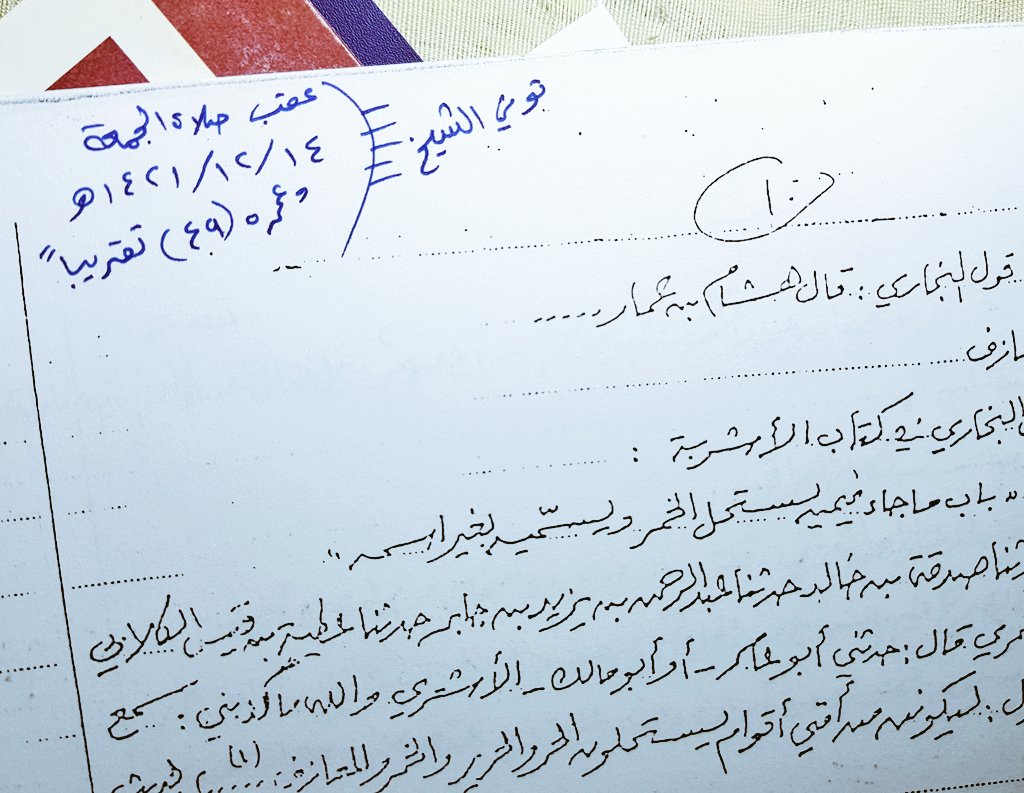 توفي الشيخ
عقب صلاة الجمعة
١٤٢١/١٢/١٤هـ
وعمره (٤٩) تقريباً
١٠
قول البخاري: قال هشام بن عمار .....
البخاري في كتاب الأشربة :
" باب ما جاء فيمن يستحل الخمر ويسمّيه بغير اسمه "
صدقة بن خالد حدثنا عبدالرحمن بن يزيد بن جابر حدثنا عطية بن قيس الكلابي
قال: حدثني أبو عامر - أو أبو مالك - الأشعري والله ما كذبني: سمع
: ليكونن من أمتي أقوام يستحلون الحر والحرير والخمر والمعازف ..... (١)